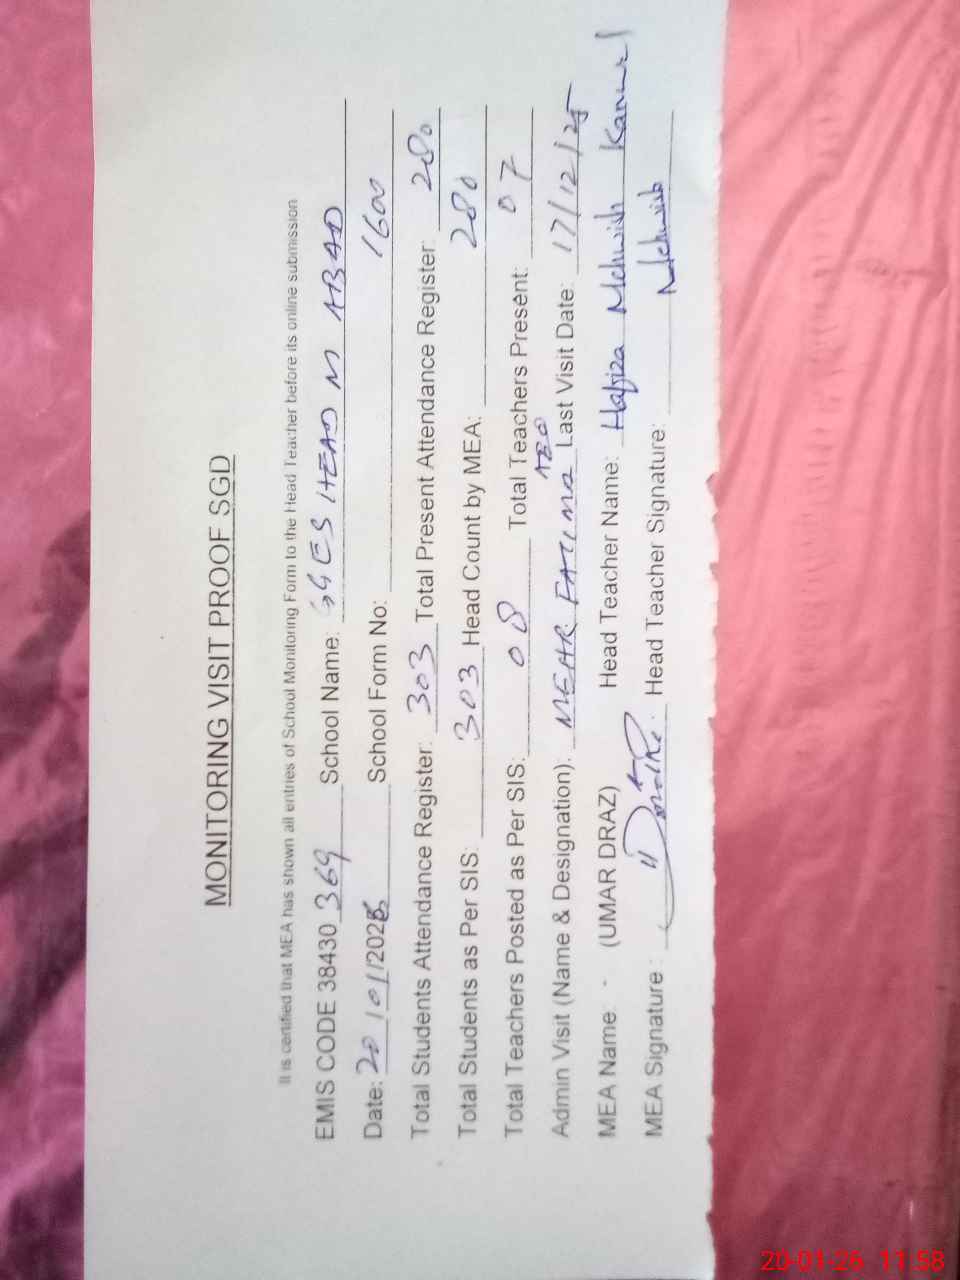 MONITORING VISIT PROOF SGD
It is certified that MEA has shown all entries of School Monitoring Form to the Head Teacher before its online submission
EMIS CODE 38430 369 School Name: GGES HEAD M ABAD
Date: 20/01/2026 School Form No: 1600
Total Students Attendance Register: 303 Total Present Attendance Register: 280
Total Students as Per SIS: 303 Head Count by MEA: 280
Total Teachers Posted as Per SIS: 08 Total Teachers Present: 07
Admin Visit (Name & Designation): MEHR FATIMA AEO Last Visit Date: 17/12/25
MEA Name: - (UMAR DRAZ) Head Teacher Name: Hafiza Mehwish Kanwal
MEA Signature: Head Teacher Signature: Mehwish
20-01-26 11:58